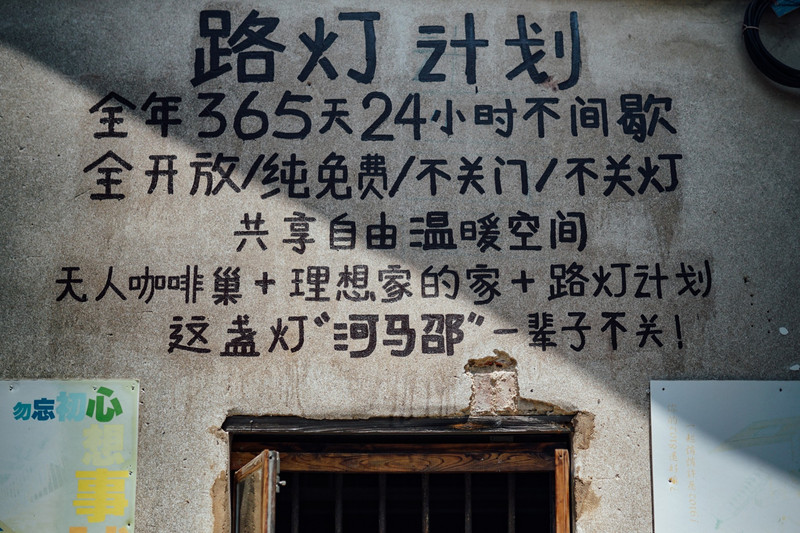 路灯计划
全年365天24小时不间歇
全开放/纯免费/不关门/不关灯
共享自由温暖空间
无人咖啡巢+理想家的家+路灯计划
这盏灯“河马邵”一辈子不关!
勿忘初心
想
事